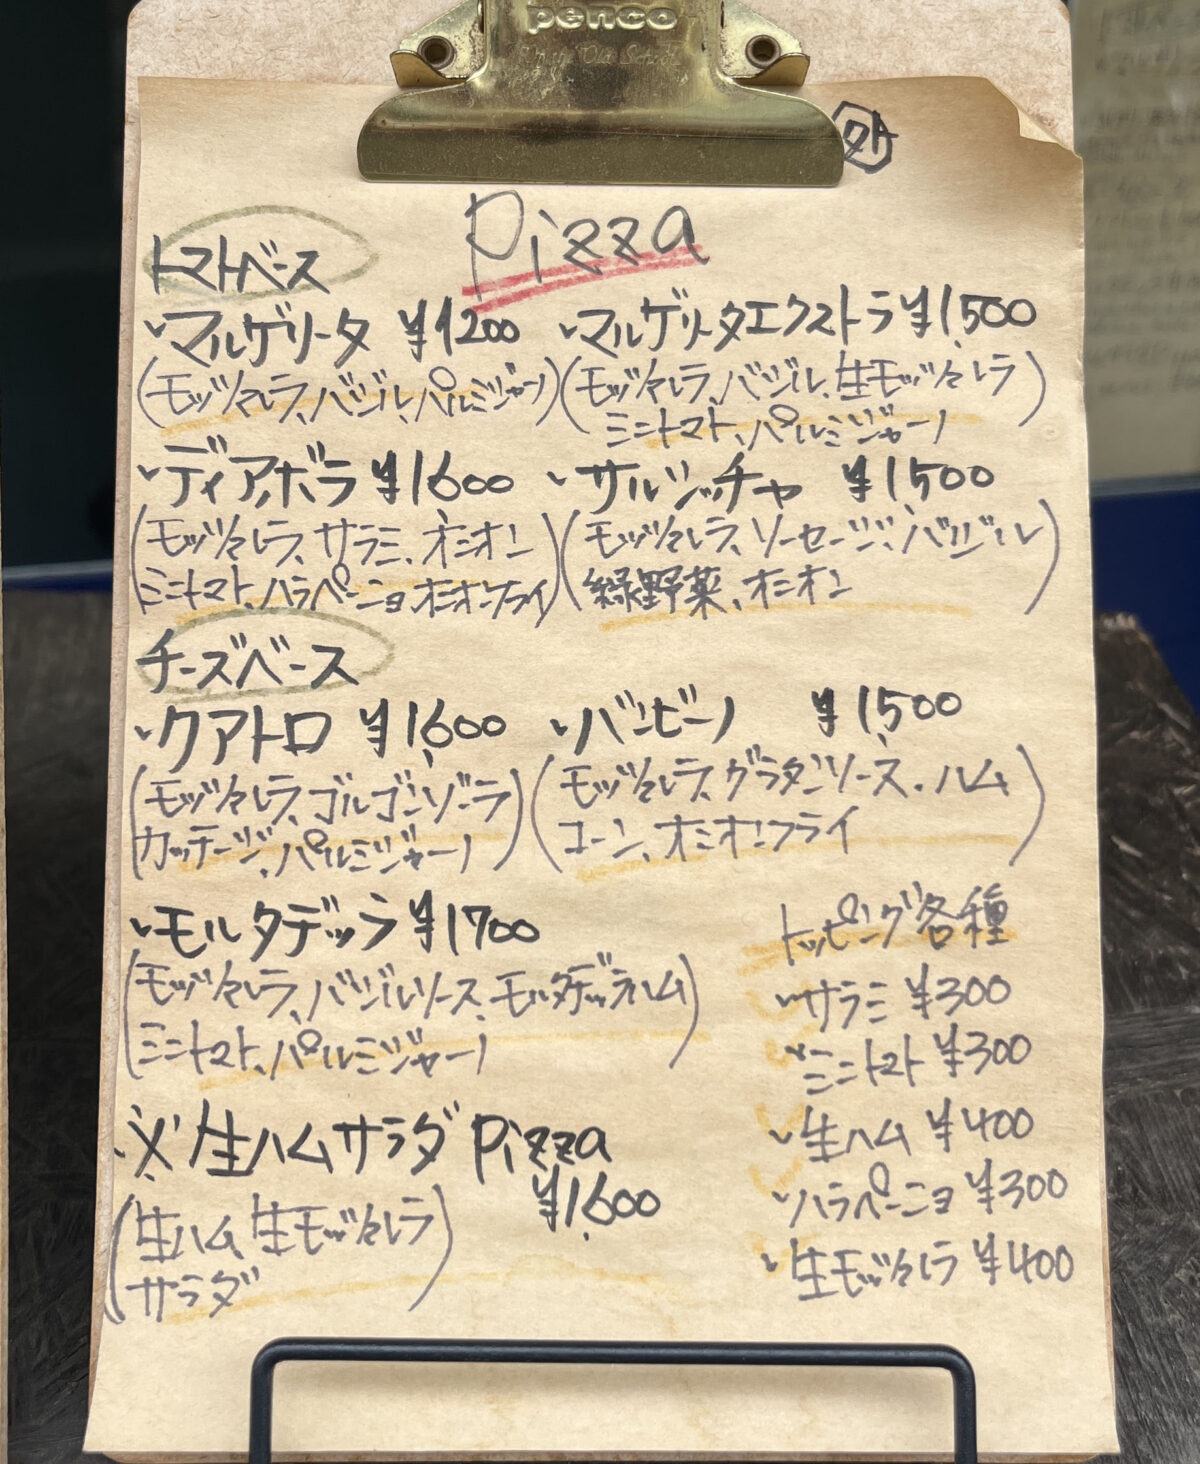 penco
外
Pizza
トマトベース
・マルゲリータ ¥1200 ・マルゲリータエクストラ ¥1,500
(モッツァレラ、バジル、パルミジャーノ) (モッツァレラ、バジル、生モッツァレラ
ミニトマト、パルミジャーノ)
・ディアボラ ¥1,600 ・サルシッチャ ¥1,500
(モッツァレラ、サラミ、オニオン (モッツァレラ、ソーセージ、バジル
ミニトマト、ハラペーニョ、オニオンフライ) 緑野菜、オニオン)
チーズベース
・クアトロ ¥1,600 ・バンビーノ ¥1,500
(モッツァレラ、ゴルゴンゾーラ (モッツァレラ、グラタンソース、ハム
カッテージ、パルミジャーノ) コーン、オニオンフライ)
・モルタデッラ ¥1700
(モッツァレラ、バジルソース、モルタデッラハム
ミニトマト、パルミジャーノ)
※生ハムサラダ Pizza
¥1,600
(生ハム、生モッツァレラ
サラダ)
トッピング各種
・サラミ ¥300
・ミニトマト ¥300
・生ハム ¥400
・ハラペーニョ ¥300
・生モッツァレラ ¥400